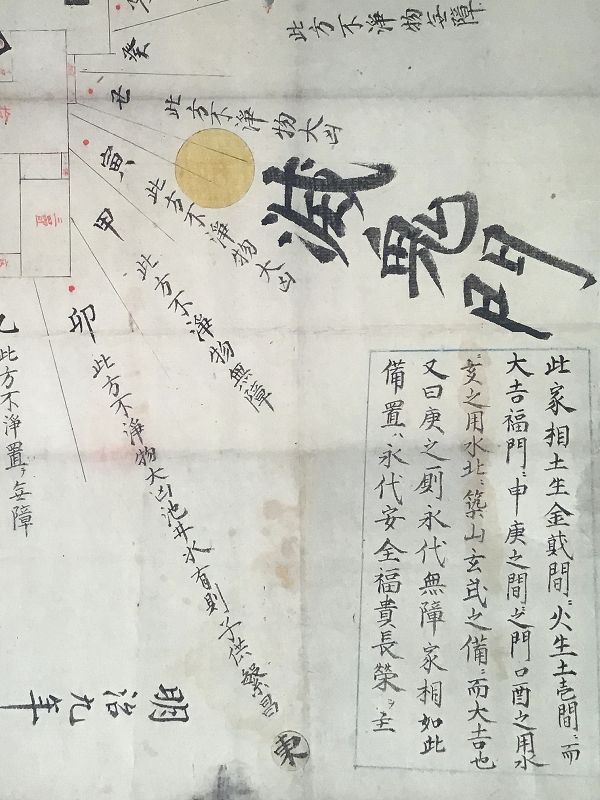 此方不淨物無障
癸
丑
此方不淨物大凶
寅
此方不淨物大凶
甲
此方不淨物無障
卯
此方不淨物大凶池井水有則子供繁昌
此方不淨置ヲ無障
鬼門
此家相土生金貳間ニ火生土壱間ニ而
大吉福門ニ申庚之間ニ之門口酉之用水
亥之用水北ニ築山玄武之備ニ而大吉也
又曰庚之厠永代無障家相如此
備置ハ永代安全福貴長榮ヲ主
明治九年
東